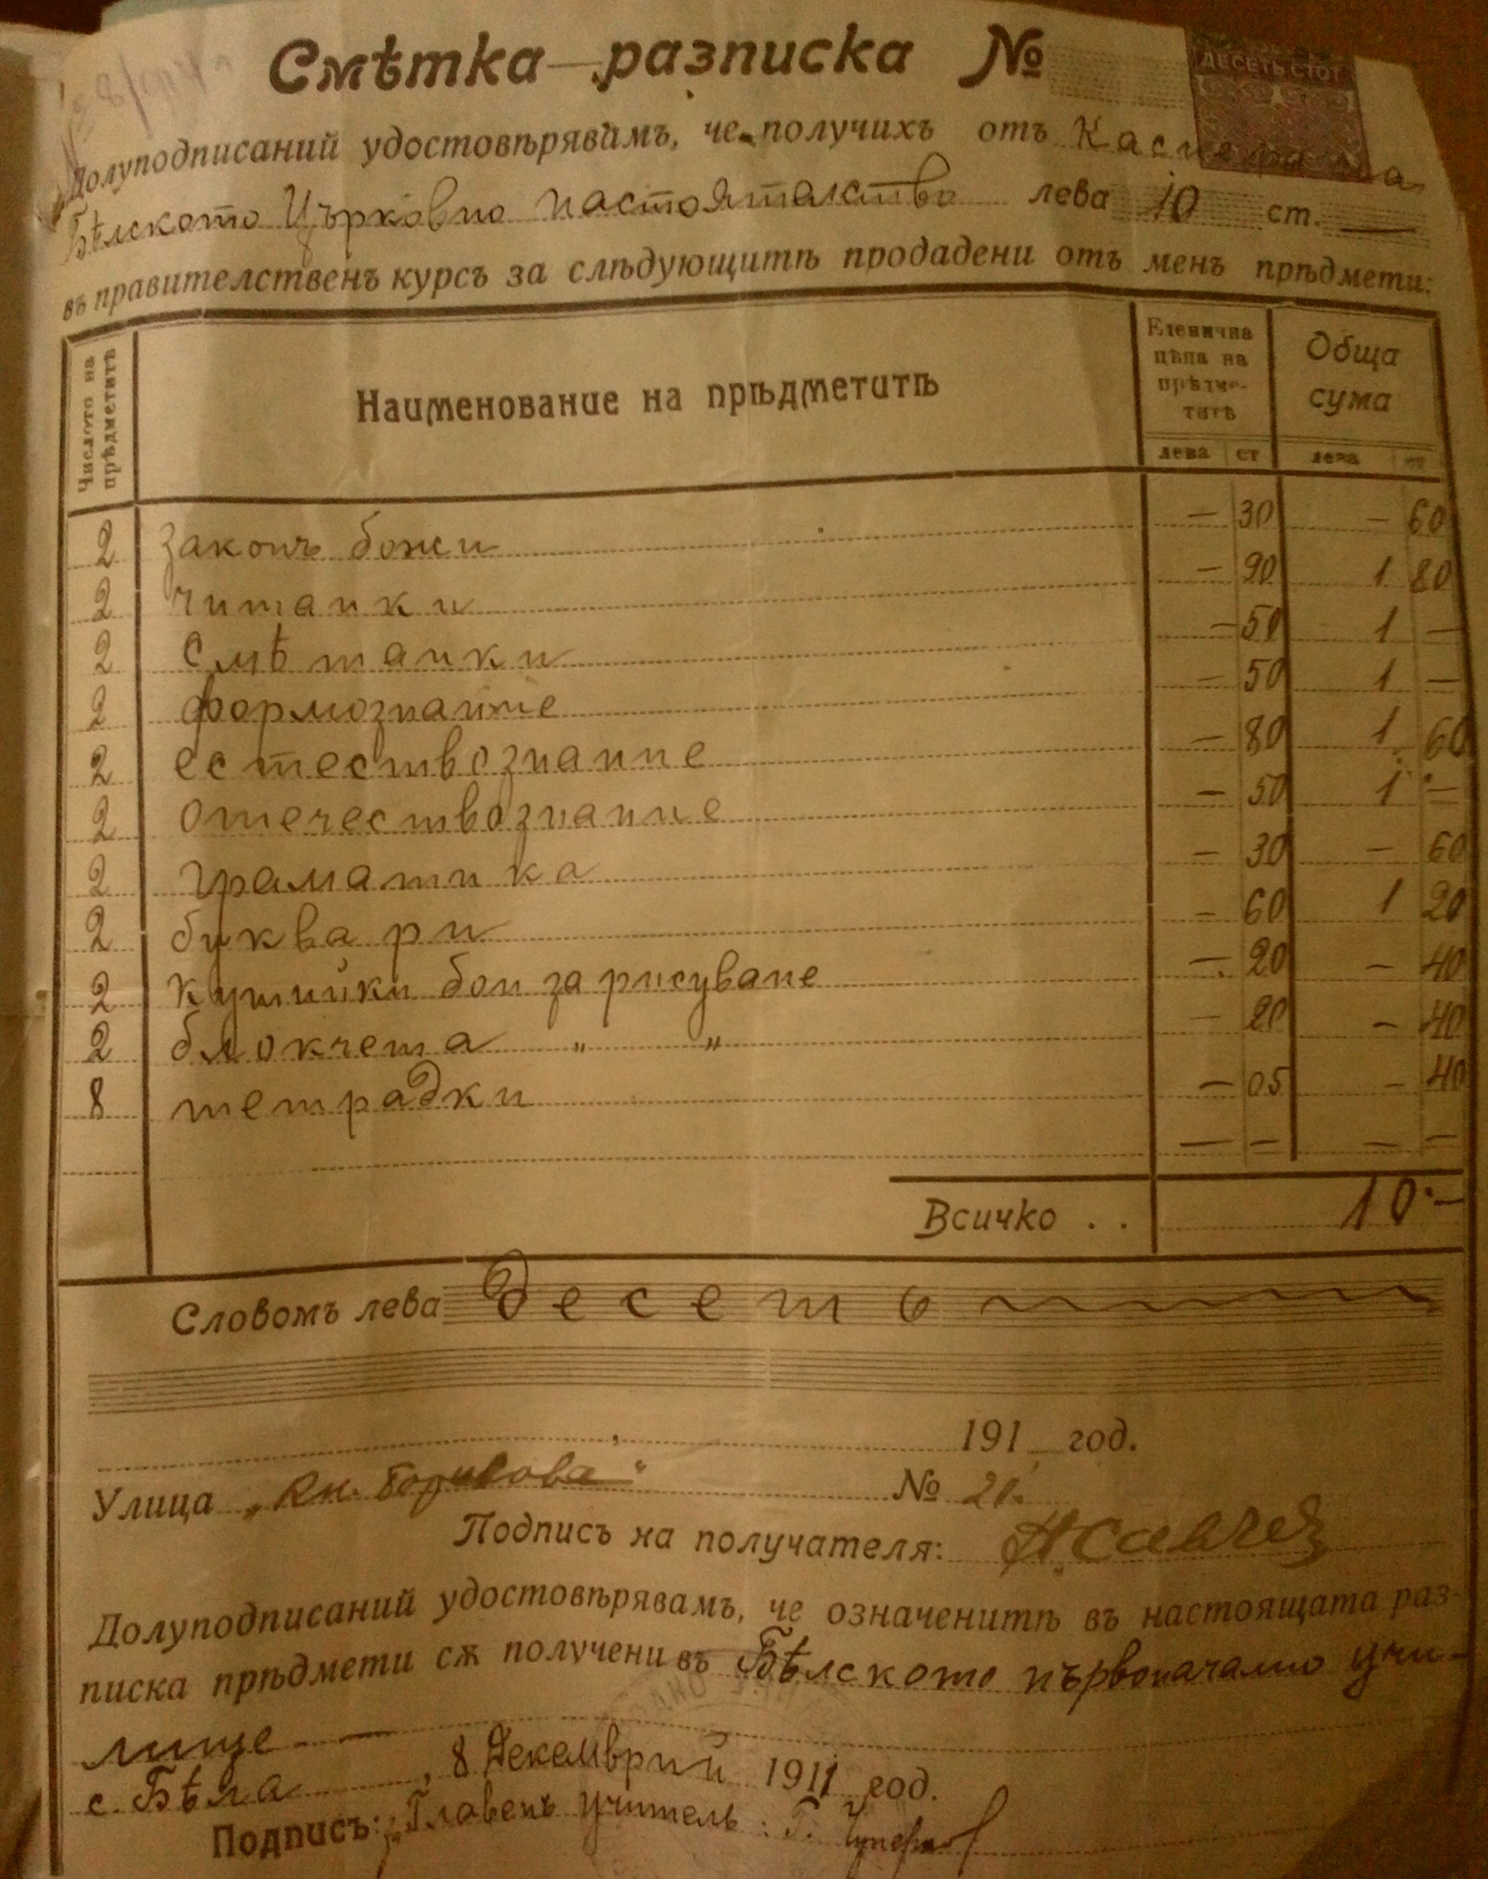 Смѣтка — разписка №
ДЕСЕТЬ СТОТ.
Долуподписаний удостовѣрявамъ, че получихъ отъ
Бѣлското Църковно настоятелство лева 10 ст. —
въ правителственъ курсъ за слѣдующитѣ продадени отъ менъ прѣдмети:
Числото на прѣдметитѣ
Наименование на прѣдметитѣ
Еденична цѣна на прѣдме-титѣ
Обща сума
лева ст лева ст
2 законъ божи — 30 — 60
2 читанки — 90 1 80
2 смѣтанки — 50 1 —
2 формознание — 50 1 —
2 естествознание — 80 1 60
2 отечествознание — 50 1 —
2 граматика — 30 — 60
2 буквари — 60 1 20
2 кутийки бои за рисуване — 20 — 40
2 блокчета „ „ — 20 — 40
8 тетрадки — 05 — 40
— — — —
Всичко . . 10·—
Словомъ лева десеть
191 год.
Улица „Кн. Борисова“ № 21.
Подписъ на получателя: Н Савчев
Долуподписаний удостовѣрявамъ, че означенитѣ въ настоящата раз-
писка прѣдмети сѫ получени въ Бѣлското първоначално учи-
лище —
с. Бѣла, 8 Декемврий 1911 год.
Подписъ: Главенъ учитель: Г.